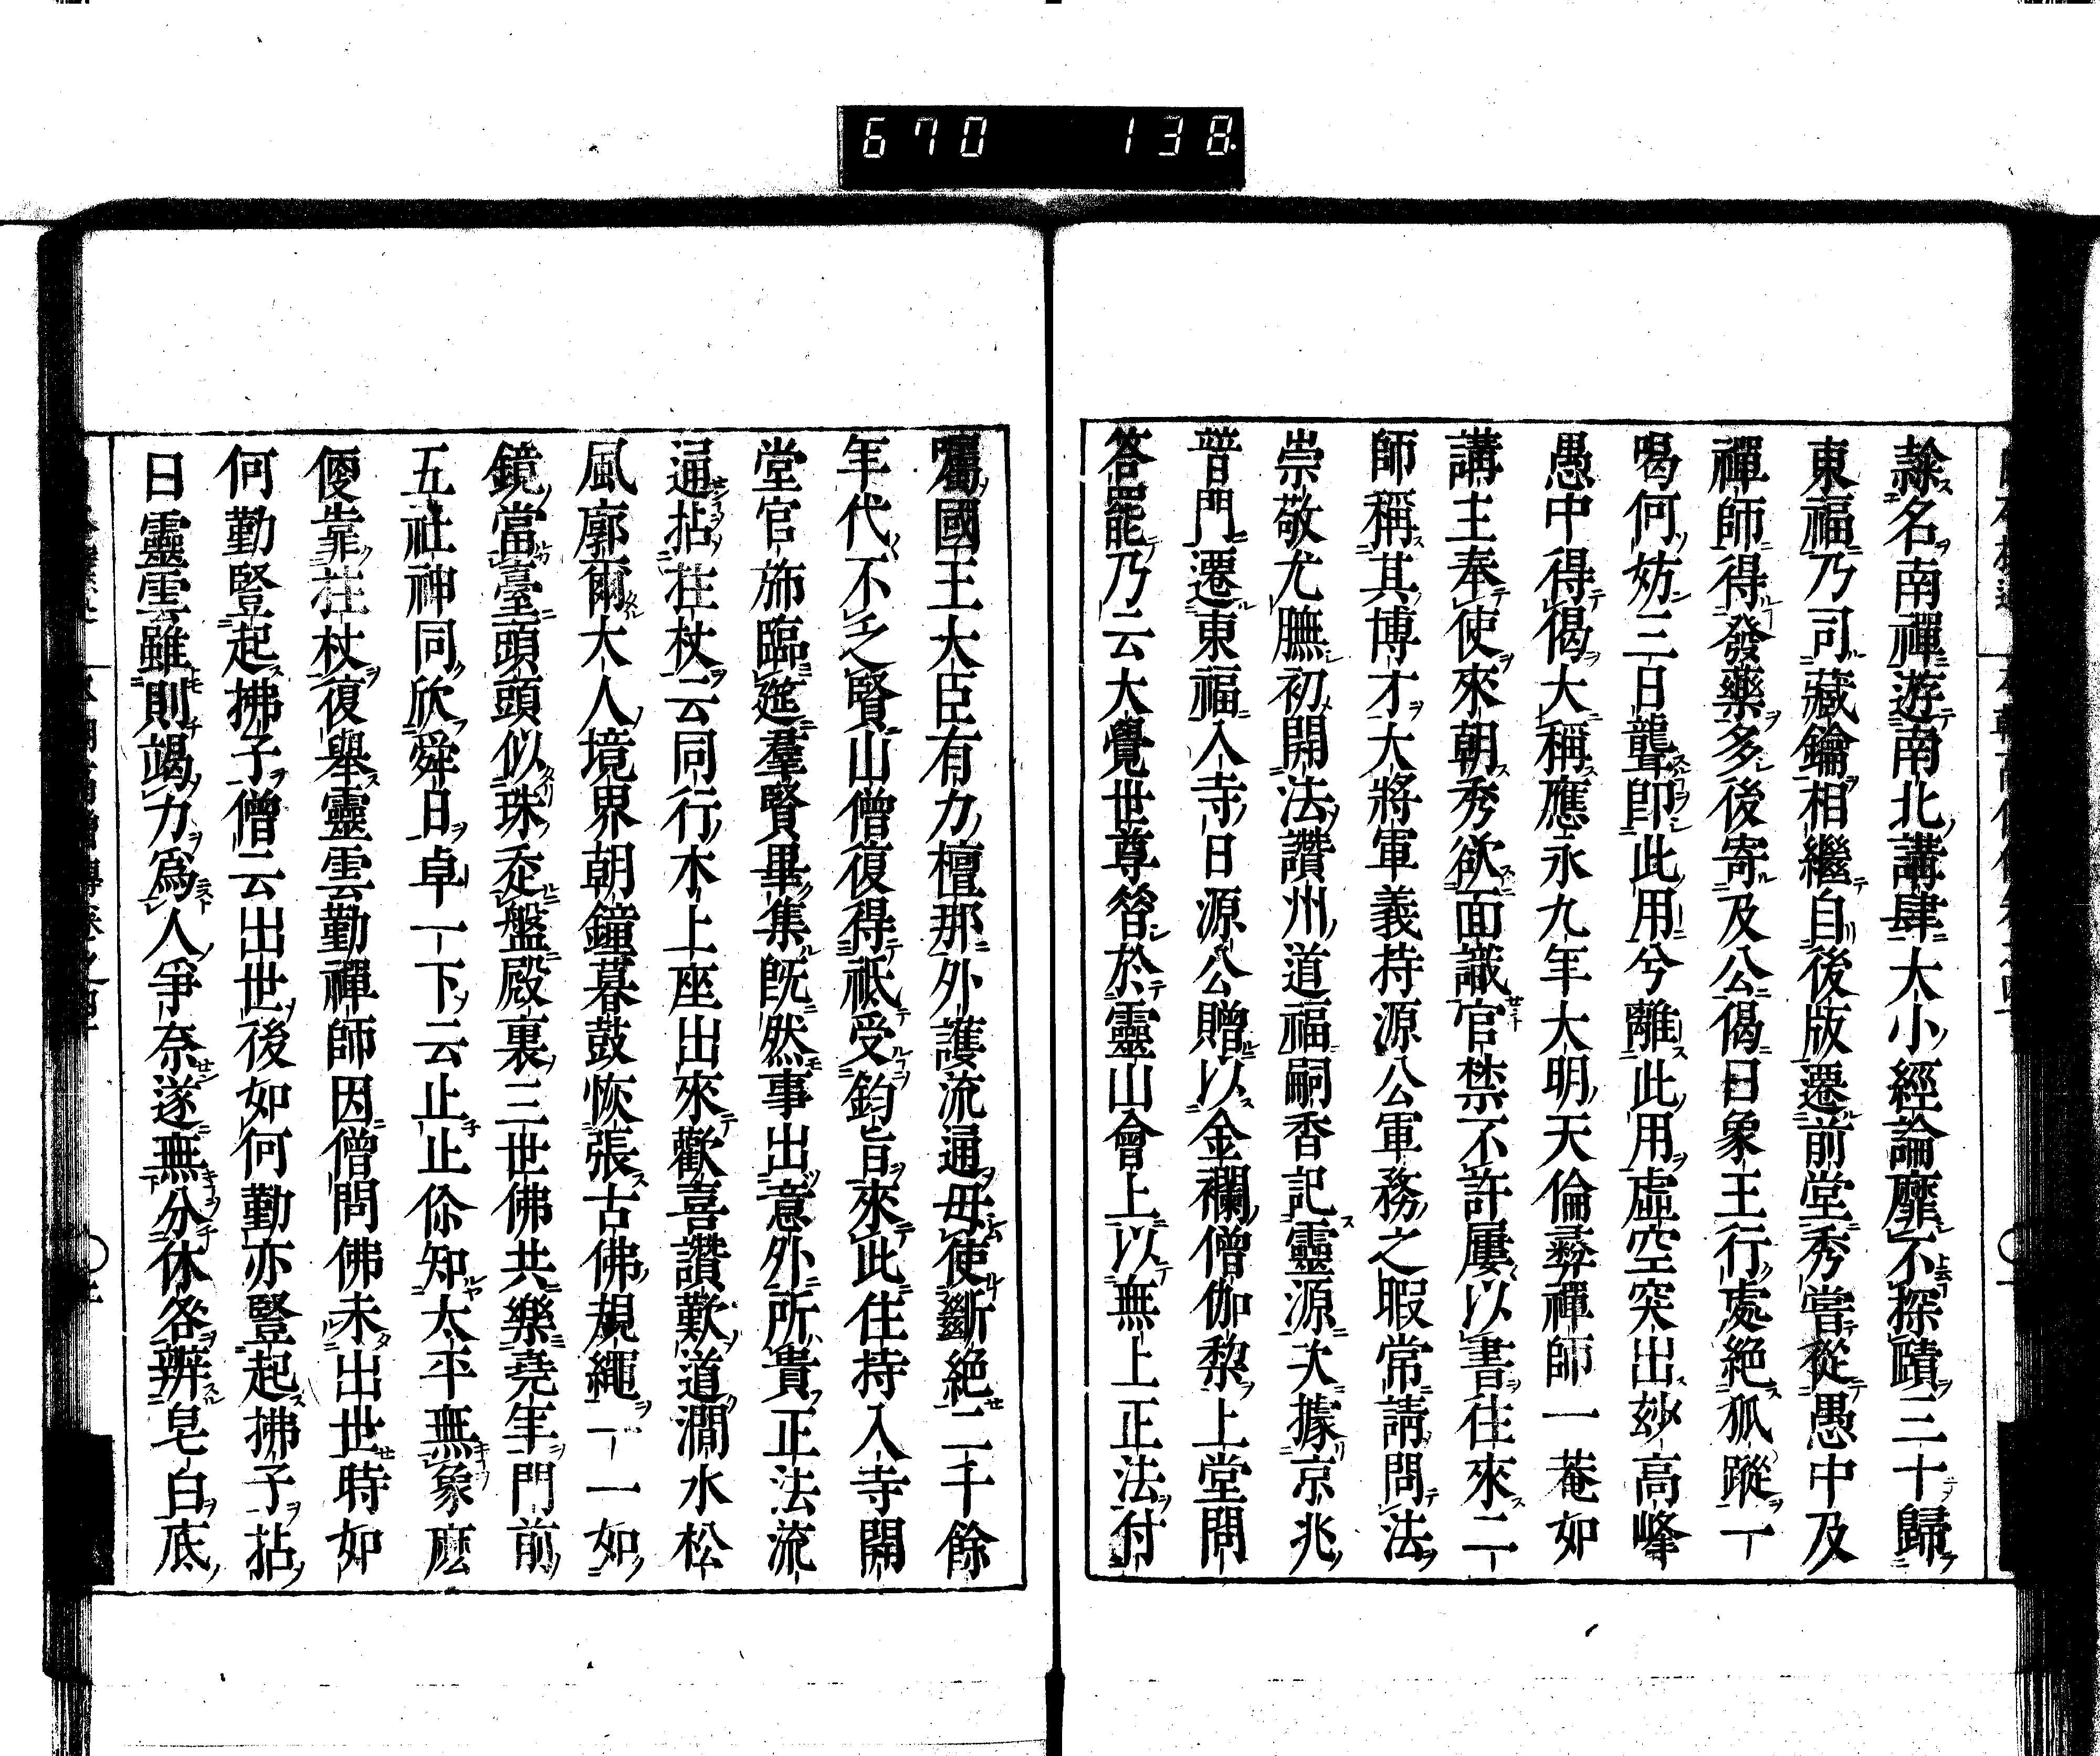 670 138
隷名南禪遊南北講肆大小經論靡不探賾三十歸
東福乃司藏鑰相繼自後版遷前堂秀嘗從愚中及
禪師得發藥多後寄及公偈曰象王行處絶狐蹤一
喝何妨三日聾卽此用兮離此用虛空突出玅高峰
愚中得偈大稱應永九年大明天倫彜禪師一菴如
講主奉使來朝秀欲面識官禁不許屢以書往來二
師稱其博才大將軍義持源公軍務之暇常請問法
崇敬尤膴初開法讚州道福嗣香記靈源次據京兆
普門遷東福入寺日源公贈以金襴僧伽梨上堂問
答罷乃云大覺世尊曾於靈山會上以無上正法付
囑國王大臣有力檀那外護流通毋使斷絶二千餘
年代不乏賢山僧復得祗受鈞旨來此住持入寺開
堂官旆臨筵羣賢畢集旣然事出意外所貴正法流
通拈拄杖云同行木上座出來歡喜讚歎道澗水松
風廓爾大人境界朝鐘暮鼓恢張古佛規繩一一如
鏡當臺頭頭似珠走盤殿裏三世佛共樂堯年門前
五社神同欣舜日卓一下云止止你知太平無象麽
便靠拄杖復舉靈雲勤禪師因僧問佛未出世時如
何勤豎起拂子僧云出世後如何勤亦豎起拂子拈
曰靈雲雖則竭力爲人爭奈遂無分休咎辨皂白底